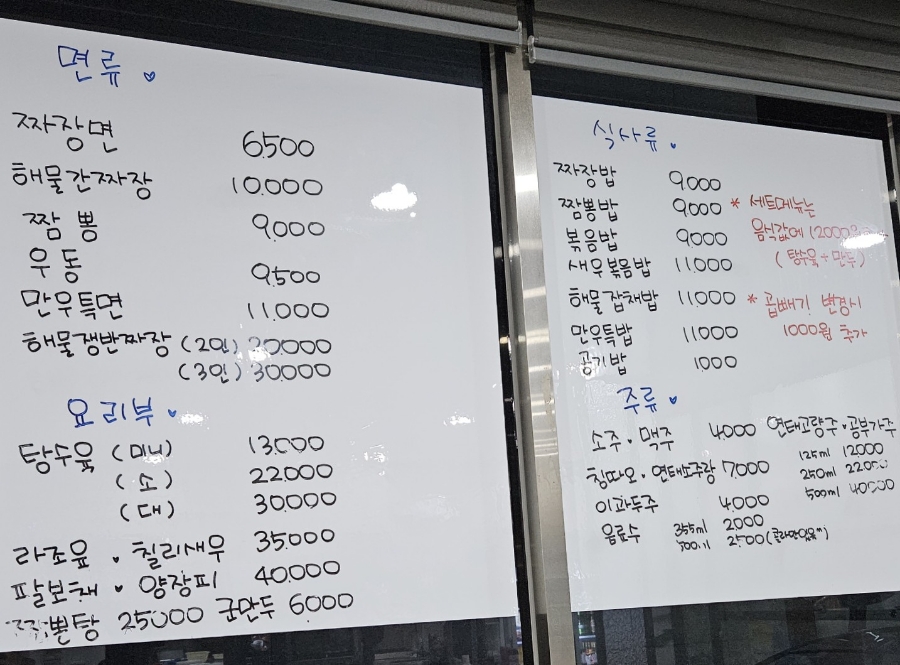 면류
짜장면 6500
해물간짜장 10.000
짬뽕 9,000
우동 9,500
만우특면 11.000
해물쟁반짜장 (2인) 20.000
(3인) 30.000
요리부
탕수육 (미니) 13.000
(소) 22.000
(대) 30.000
라조육 · 칠리새우 35.000
팔보채 · 양장피 40.000
짬뽕탕 25000 군만두 6000
식사류
짜장밥 9,000
짬뽕밥 9,000
볶음밥 9,000
새우볶음밥 11.000
해물잡채밥 11,000
만우특밥 11000
공기밥 1000
* 세트메뉴는
음식값에 12000원
(탕수육+만두)
* 곱빼기 변경시
1000원 추가
주류
소주 · 맥주 4000
칭따오 · 7.000
이과두주 4,000
음료수 355ml 2000
2500
연태고량주 · 공부가주
125ml 12000
250ml 22000
500ml 40000